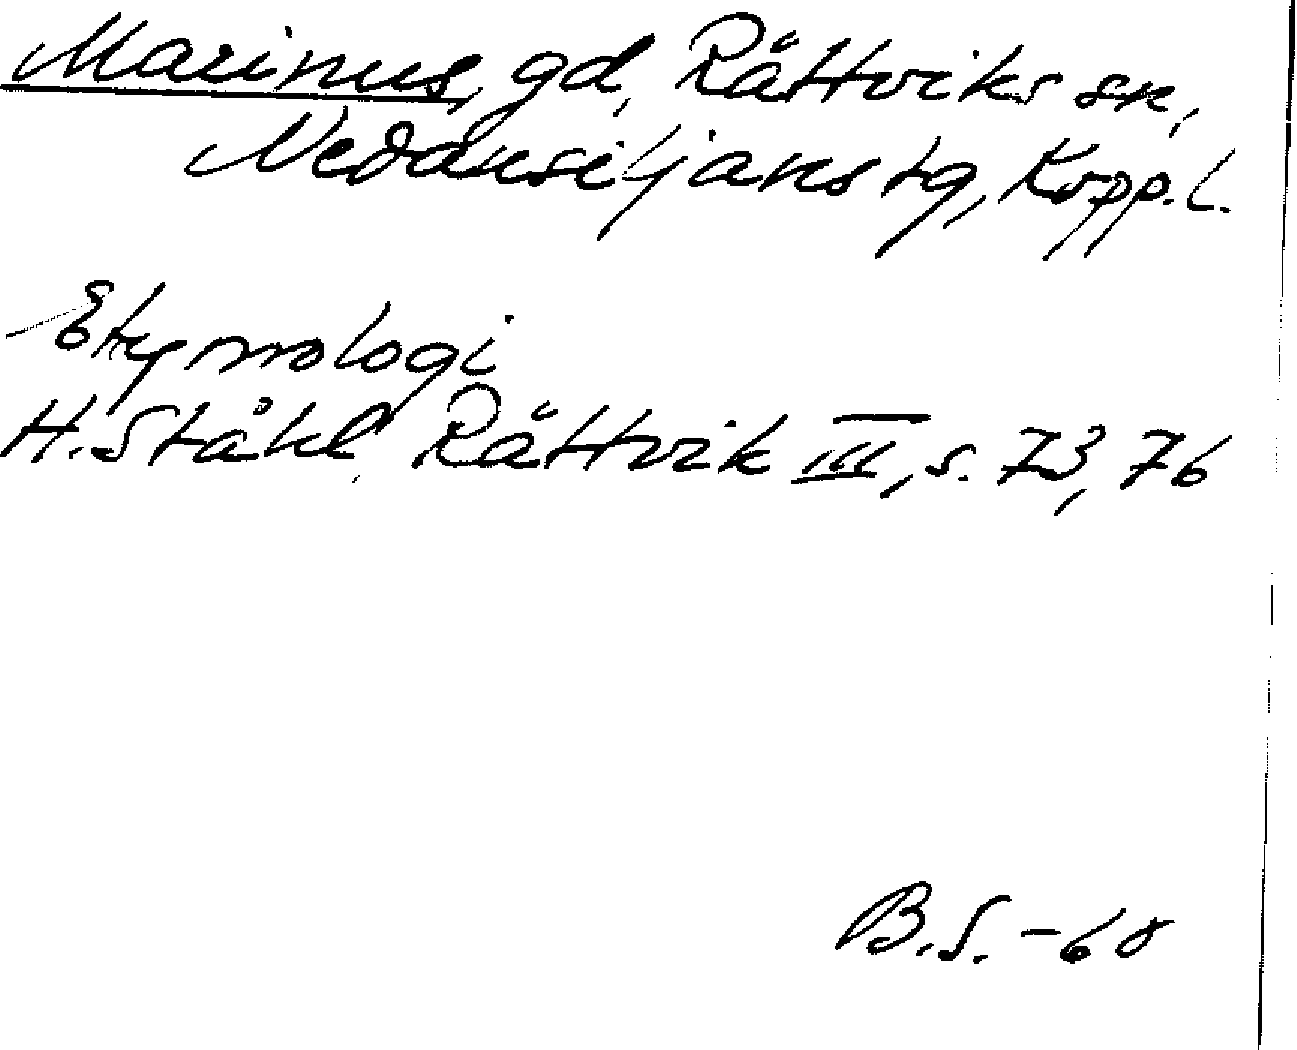 Marinus, gd, Rättviks sn,
Nedansiljans tg, Kopp. l.
Etymologi
H. Ståhl, Rättvik III, s. 73, 76
B.S. -68